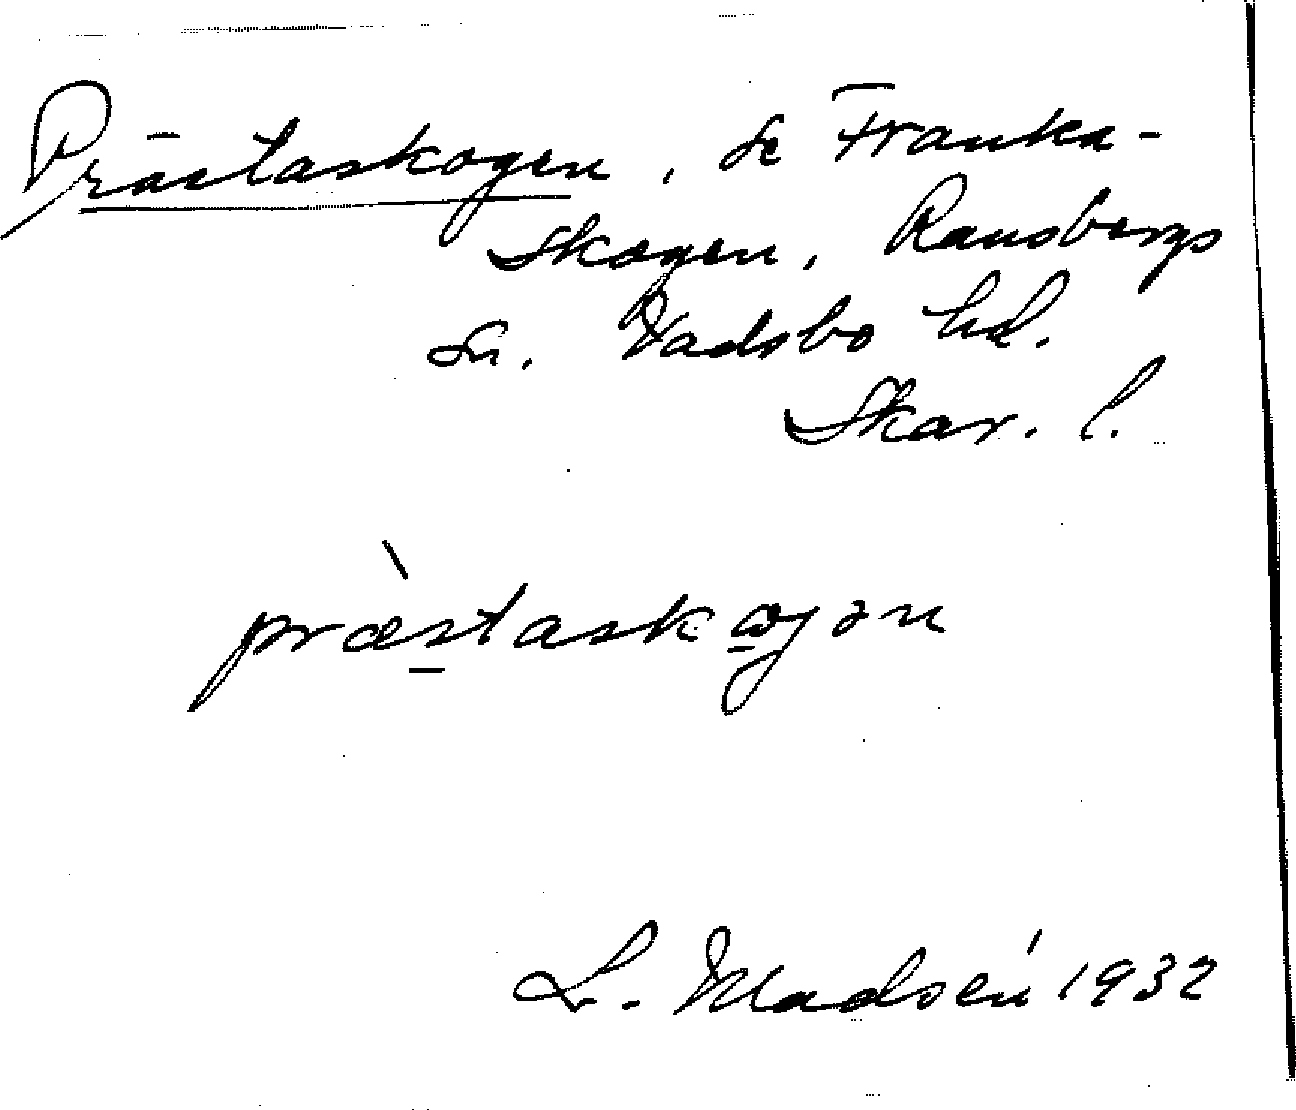 Prästaskogen, se Franka-
skogen, Ransbergs
sn. Vadsbo hd.
Skar. l.
præ̀staskogən
L. Madsén 1932